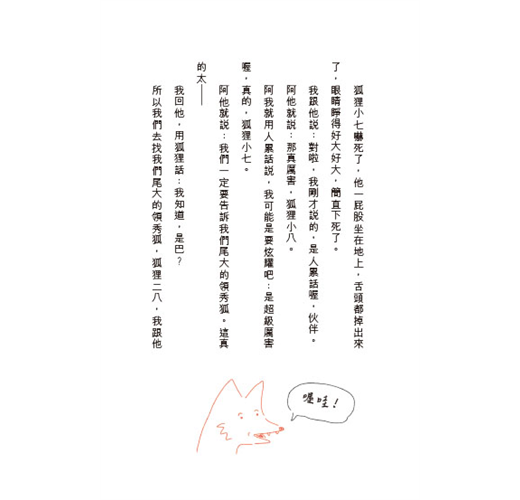 狐狸小七嚇死了，他一屁股坐在地上，舌頭都掉出來
了，眼睛睜得好大好大，簡直下死了。
我跟他說：對啦，我剛才說的，是人累話喔，伙伴。
阿他就說：那真厲害，狐狸小八。
阿我就用人累話說，我可能是要炫耀吧：是超級厲害
喔，真的，狐狸小七。
阿他就說：我們一定要告訴我們尾大的領秀狐。這真
的太——
我回他，用狐狸話：我知道，是巴？
所以我們去找我們尾大的領秀狐，狐狸二八，我跟他
喔哇！